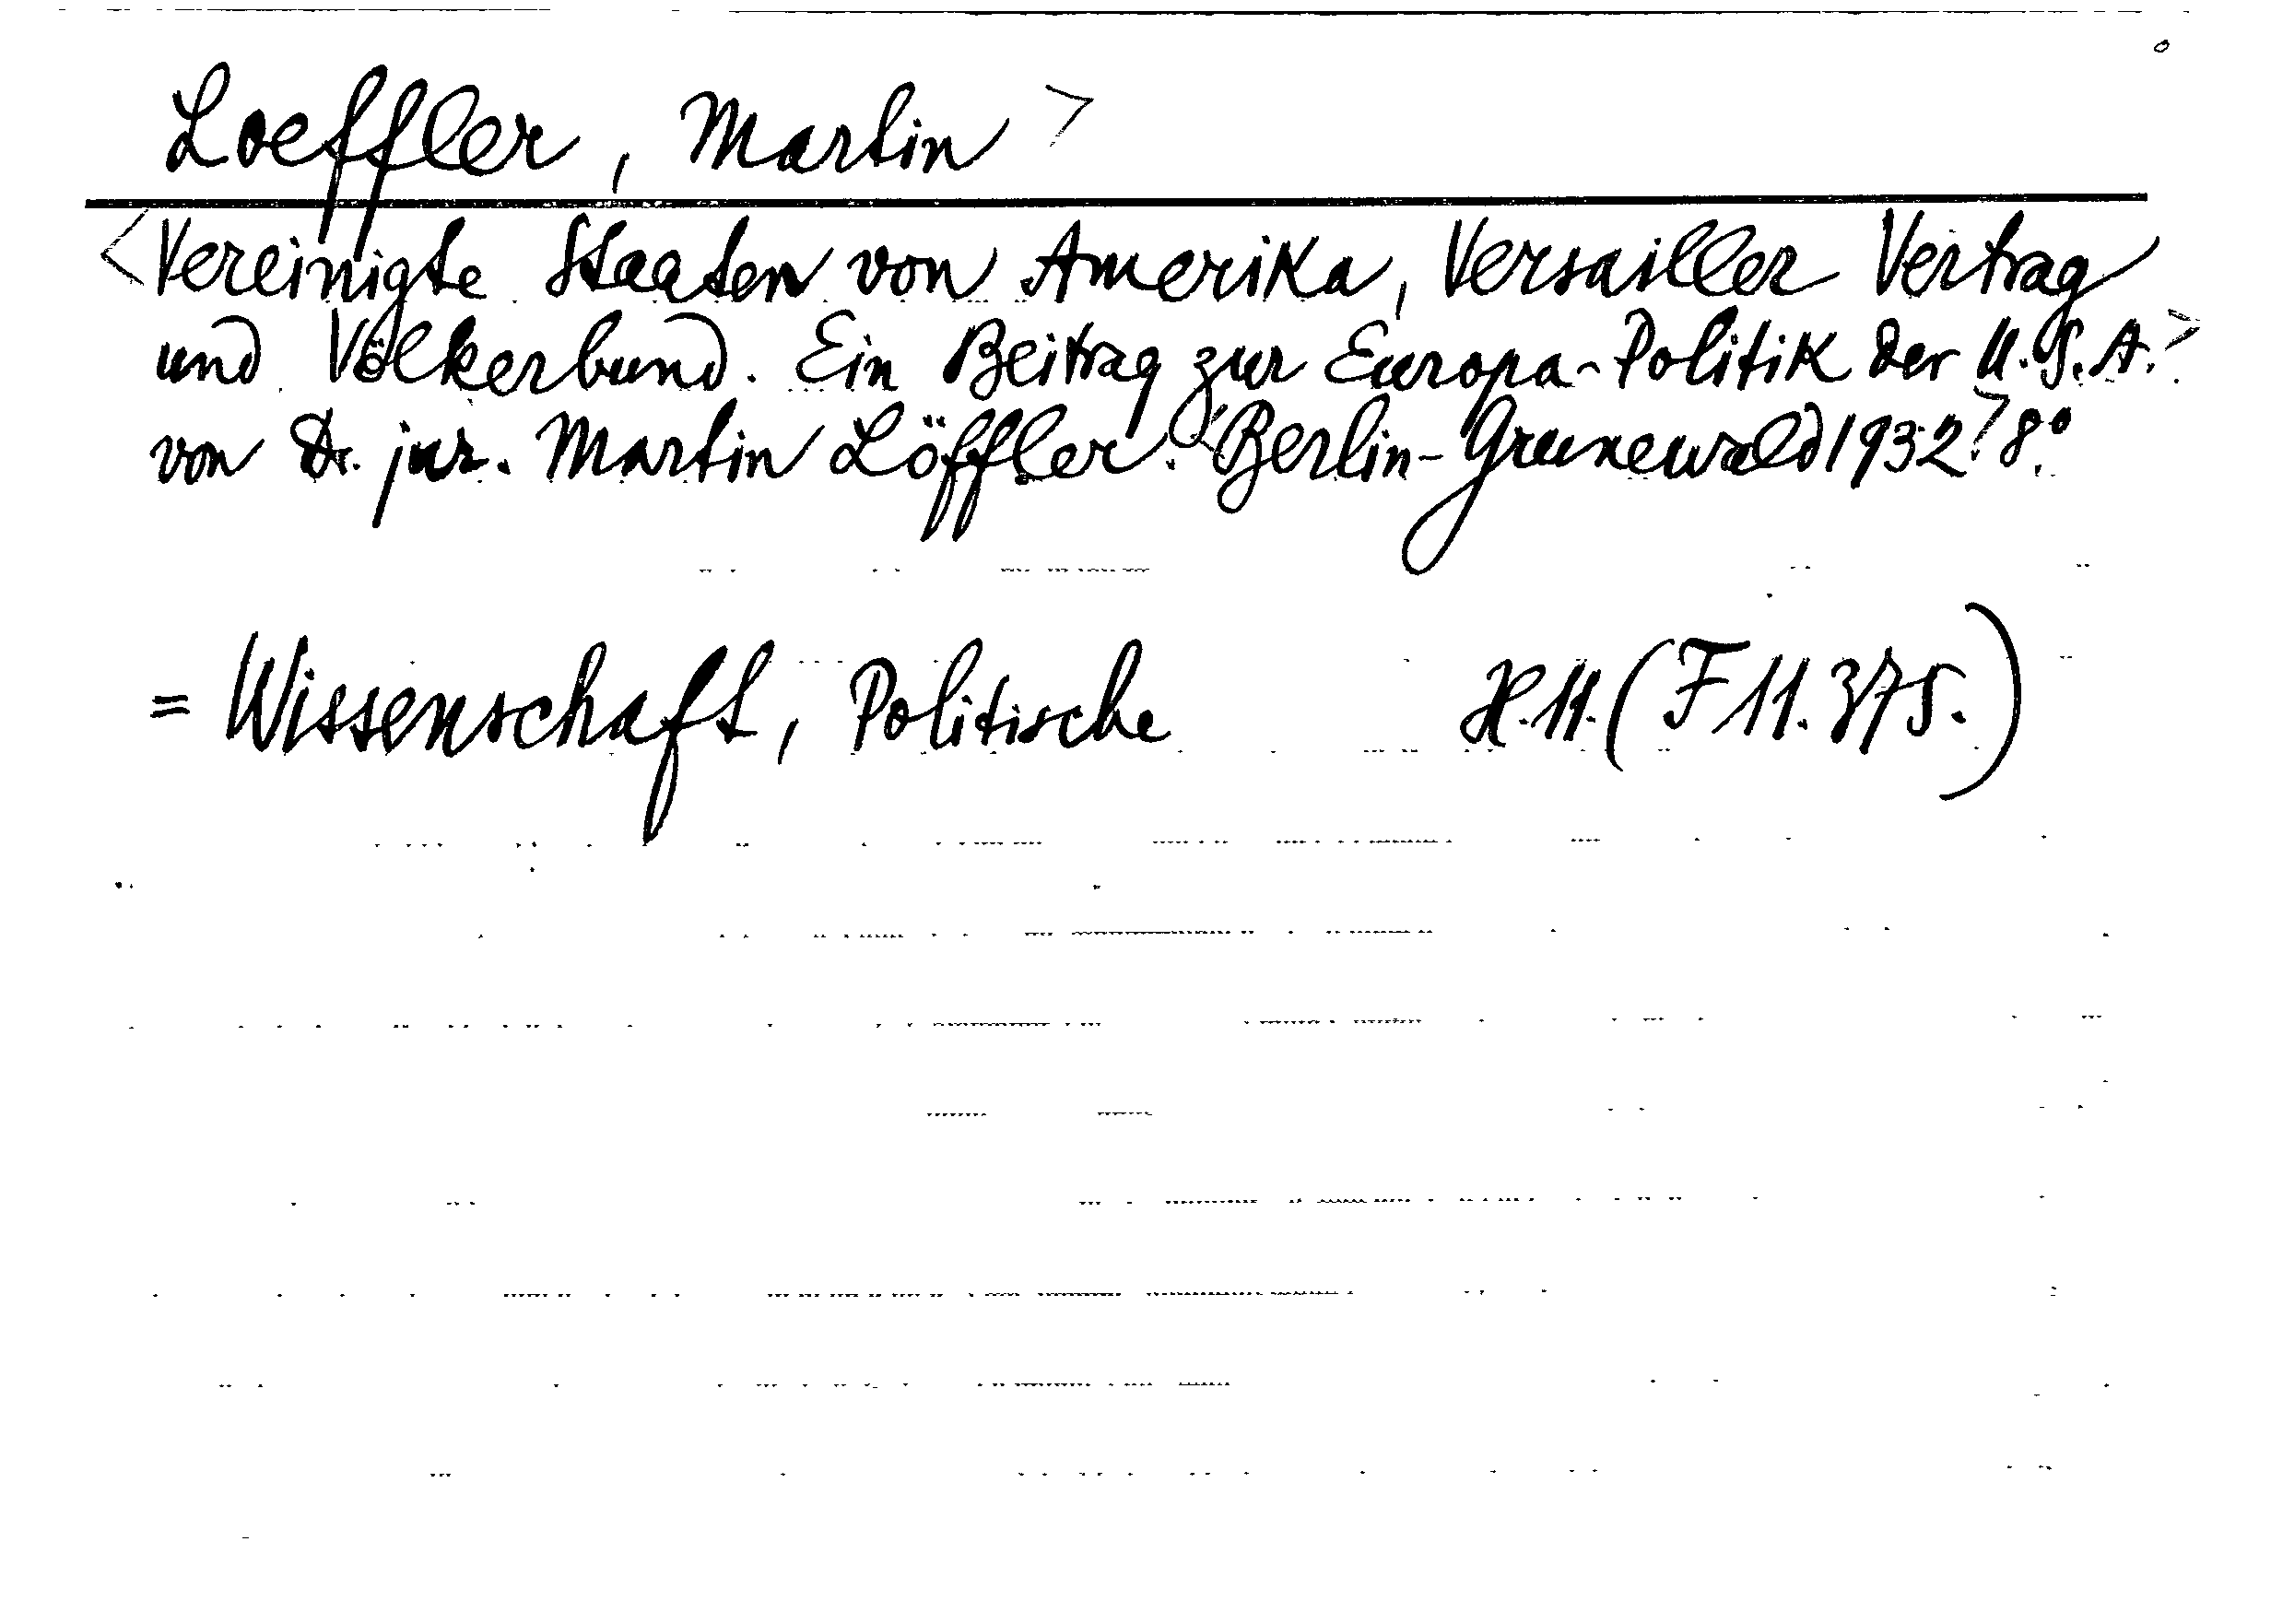 Loeffler, Martin >
<Vereinigte Staaten von Amerika, Versailler Vertrag
und Völkerbund. Ein Beitrag zur Europa-Politik der U.S.A.>
von Dr. jur. Martin Löffler. <Berlin-Grunewald 1932> 8°.
= Wissenschaft, Politische H.11. (F 11.375.)